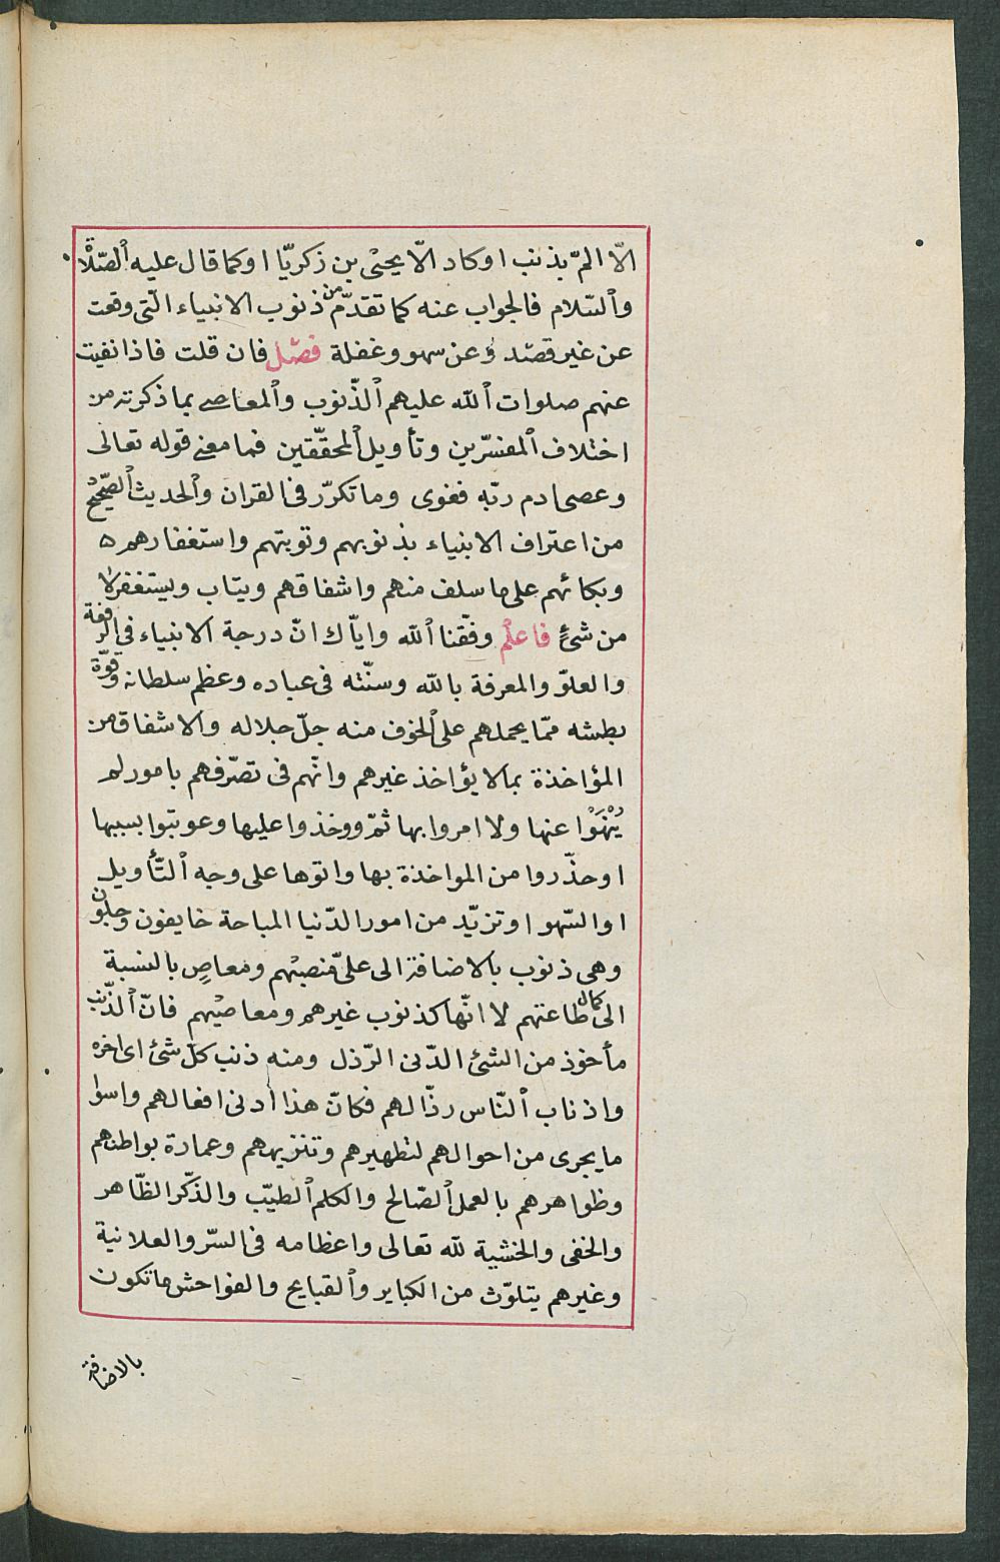 الّا المّ بذنب او كاد الّا يحيٰى بن زكريّا او كما قال عليه الصّلاة
والسّلام فالجواب عنه كما تقدّم من ذنوب الانبياء الّتى وقعت
عن غير قصد وعن سهو وغفلة فصل فان قلت فاذا نفيت
عنهم صلوات الله عليهم الذّنوب والمعاصى بما ذكرته من
اختلاف المفسّرين وتأويل المحقّقين فما معنى قوله تعالى
وعصى ادم ربّه فغوى وما تكرّر فى القران والحديث الصّحيح
من اعتراف الانبياء بذنوبهم وتوبتهم واستغفارهم ه
وبكائهم على ما سلف منهم واشفاقهم ويتاب ويستغفر لا
من شئ فاعلم وفّقنا الله وايّاك انّ درجة الانبياء فى الرّفعة
والعلوّ والمعرفة بالله وسنّته فى عباده وعظم سلطانه وقوّة
بطشه ممّا يحملهم على الخوف منه جلّ جلاله والاشفاق من
المؤاخذة بما لا يؤاخذ غيرهم وانّهم فى تصرّفهم بامور لم
يُنْهَوْا عنها ولا امروا بها ثمّ ووخذوا عليها وعوتبوا بسببها
او حذّروا من المواخذة بها واتوها على وجه التّأويل
او السّهو او تزيّد من امور الدّنيا المباحة خايفون وجلون
وهى ذنوب بالاضافة الى علىّ منصبهم ومعاصٍ بالنسبة
الى كمال طاعتهم لا انّها كذنوب غيرهم ومعاصيهم فانّ الذّنب
مأخوذ من الشئ الدّنى الرّذل ومنه ذنب كلّ شئ اى اخره
واذناب النّاس رذّالهم فكانّ هذا أدنى افعالهم واسوا
ما يجرى من احوالهم لتطهيرهم وتنزيههم وعمارة بواطنهم
وظواهرهم بالعمل الصّالح والكلم الطيّب والذّكر الظّاهر
والخفى والخشية لله تعالى واعظامه فى السّر والعلانية
وغيرهم يتلوّث من الكباير والقبايح والفواحش ما تكون
بالاضافة